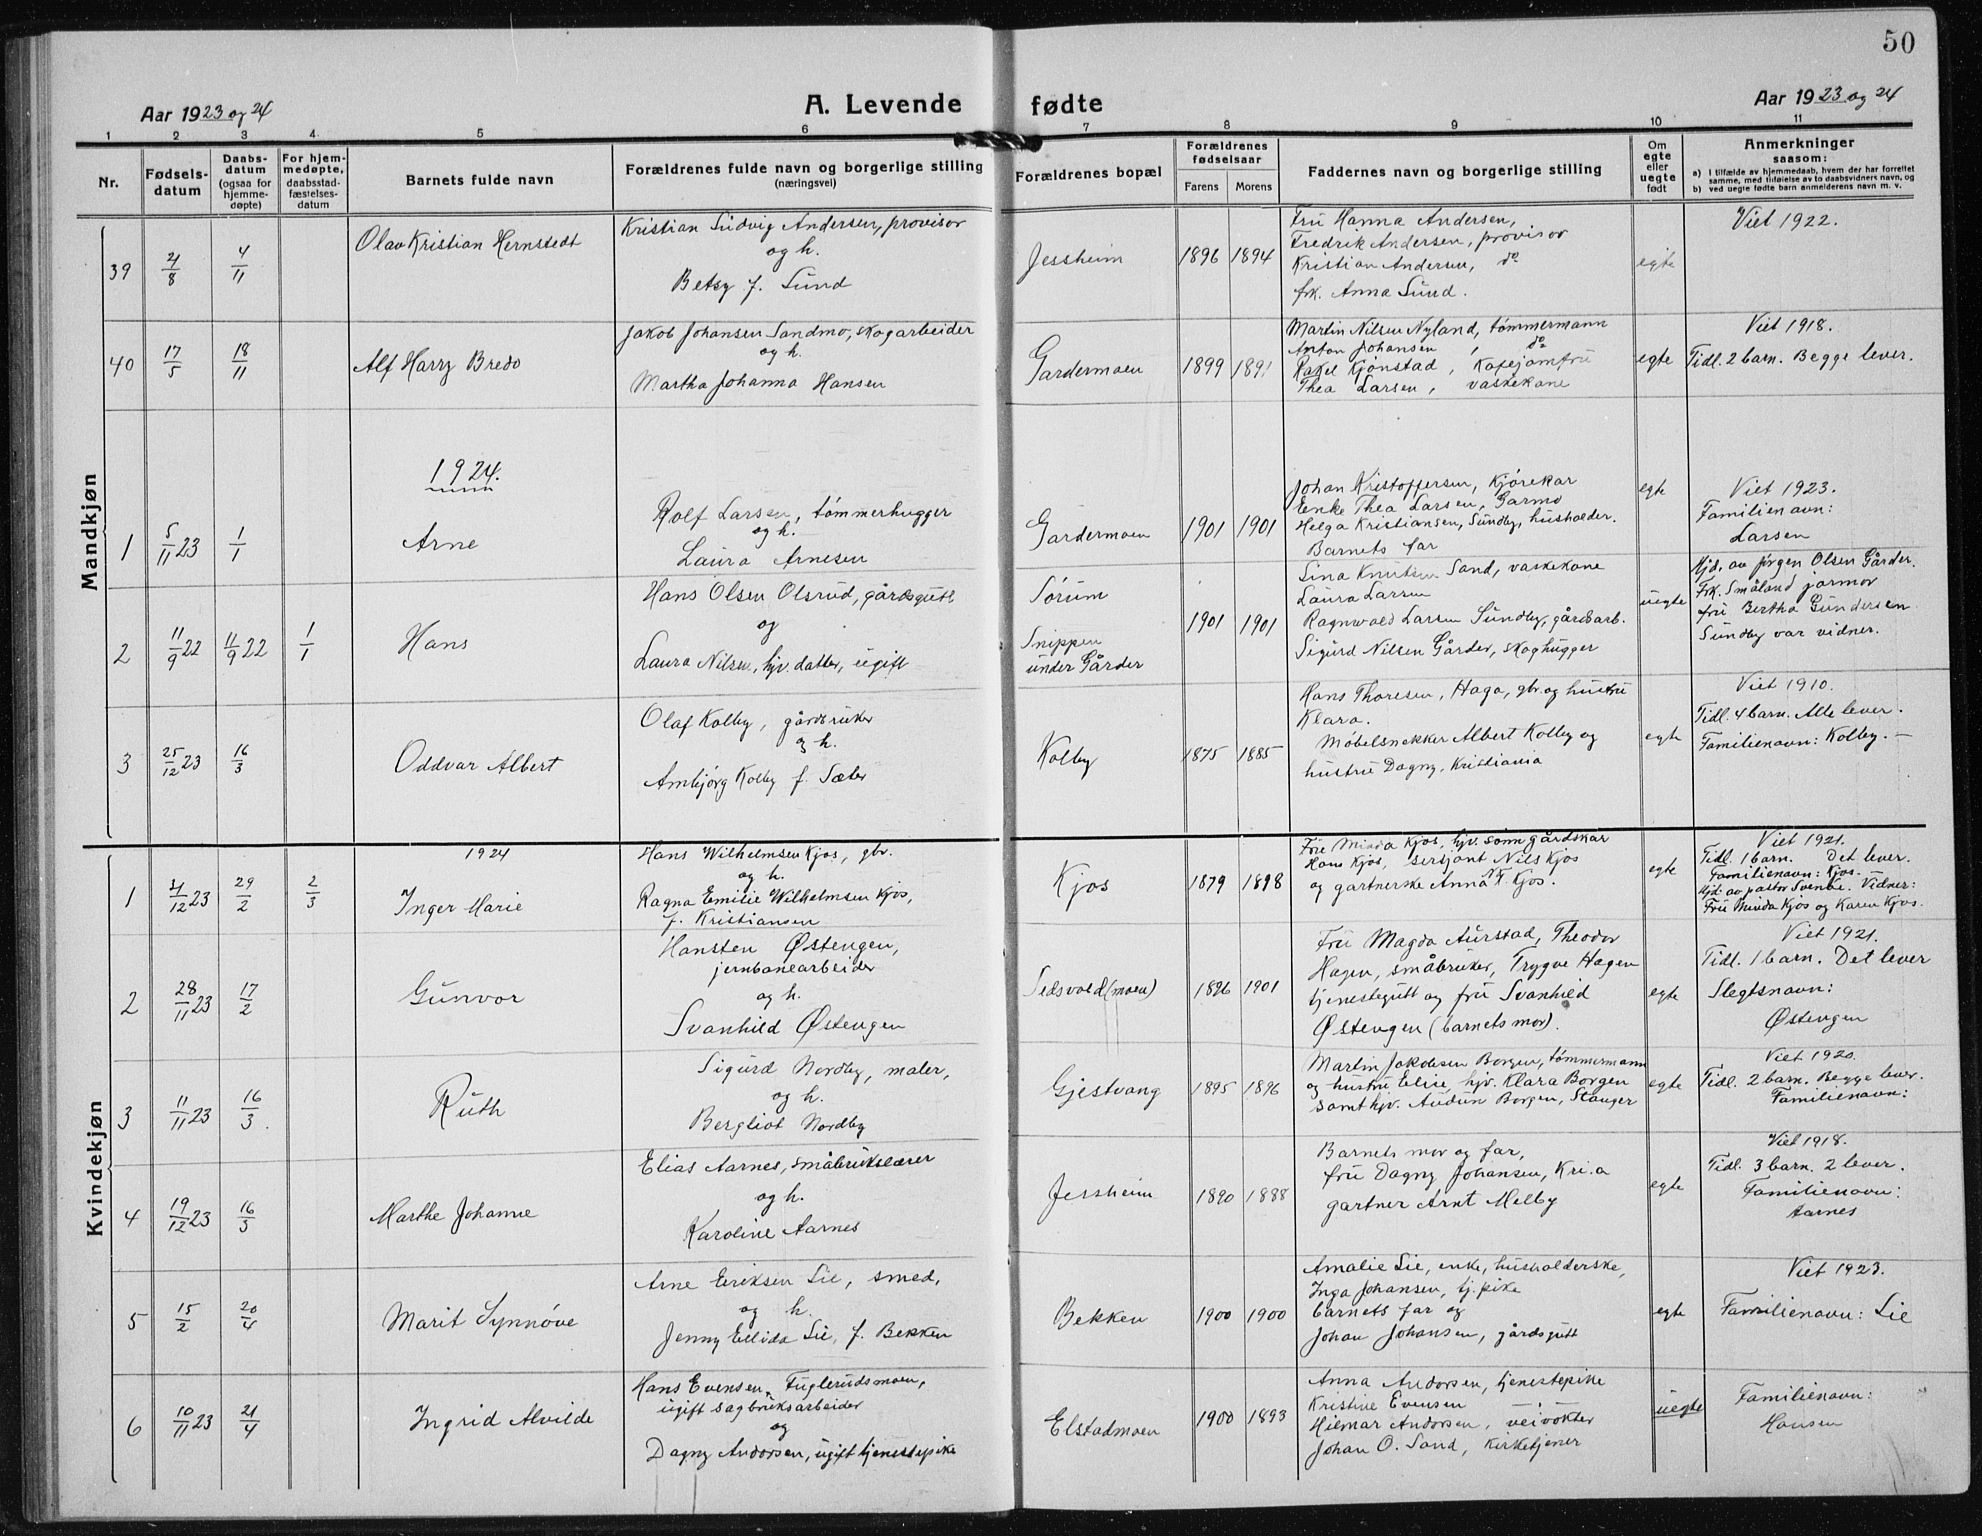 50
Aar 1923 og 24
A. Levende fødte
Aar 1923 og 24
1 2 3 4 5 6 7 8 9 10 11
Nr.
Fødsels-
datum
Daabs-
datum
(ogsaa for
hjemme-
døpte)
For hjem-
medøpte,
daabsstad-
fæstelses-
datum
Barnets fulde navn
Forældrenes fulde navn og borgerlige stilling
(næringsvei)
Forældrenes bopæl
Forældrenes
fødselsaar
Farens Morens
Faddernes navn og borgerlige stilling
Om
egte
eller
uegte
født
Anmerkninger
saasom:
a) I tilfælde av hjemmedaab, hvem der har forrettet
samme, med tilføielse av to daabsvidners navn, og
b) ved uegte fødte barn anmelderens navn m. v.
Mandkjøn
39
21/8
4/11
Olav Kristian Hernstedt
Kristian Ludvig Andersen, provisor
og h.
Betsy f. Sund
Jessheim
1896 1894
Fru Hanna Andersen,
Fredrik Andersen, provisor
Kristian Andersen, do
frk. Anna Sund.
egte
Viet 1922.
40
17/5
18/11
Alf Harry Bredo
Jakob Johansen Sandmo, skogarbeider
og h.
Martha Johanna Hansen
Gardermoen
1899 1891
Martin Nilsen Nyland, tømmermann
Anton Johansen, do
Rakel Kjønstad, Kafejomfru
Thea Larsen, vaskekone
egte
Viet 1918.
Tidl. 2 barn. Begge lever.
1924.
1
5/11 23
1/1
Arne
Rolf Larsen, tømmerhugger
og h.
Laura Arnesen
Gardermoen
1901 1901
Johan Kristoffersen, Kjørekar
Enke Thea Larsen, Garmo
Helga Kristiansen, Sundby, husholder.
Barnets far
egte
Viet 1923.
Familienavn:
Larsen
2
11/9 22
11/9 22
1/1
Hans
Hans Olsen Olsrud, gårdsgutt
og
Laura Nilsen, hjv. datter, ugift
Sørum
Snippen
under Gårder
1901 1901
Lina Knutsen Sand, vaskekone
Laura Larsen
Ragnwald Larsen Sundby, gårdsarb.
Sigurd Nilsen Gårder, skoghugger
uegte
Hjd. av Jørgen Olsen Gårder.
Frk. Småland jormor
fru Bertha Gundersen
Sundby var vidner.
3
25/12 23
16/3
Oddvar Albert
Olaf Kolby, gårdbruker
og h.
Ambjørg Kolby f. Sæter
Kolby
1875 1885
Hans Thoresen, Haga, gbr. og hustru
Klara.
Møbelsnekker Albert Kolby og
hustru Dagny, Kristiania
egte
Viet 1910.
Tidl. 4 barn. Alle lever.
Familienavn: Kolby. —
Kvindekjøn
1924
1
31/12 23
29/2
2/3
Inger Marie
Hans Wilhelmsen Kjos, gbr.
og h.
Ragna Emilie Wilhelmsen Kjos,
f. Kristiansen
Kjos
1879 1898
Fru Minda Kjos, hjv. sønn gårdskar
Hans Kjos, sersjant Nils Kjos
og gartnerske Anna F. Kjos.
egte
Viet 1921.
Tidl. 1 barn. Det lever.
Familienavn: Kjos.
Hjd. av pastor Svenke. Vidner:
Fru Minda Kjos og Karen Kjos.
2
28/11 23
17/2
Gunvor
Hansten Østengen,
jernbanearbeider
og h.
Svanhild Østengen
Sedsvold (moen)
1896 1901
Fru Magda Aurstad, Theodor
Hagen, småbruker, Trygve Hagen
tjenestegutt og fru Svanhild
Østengen (barnets mor).
egte
Viet 1921.
Tidl. 1 barn. Det lever
Slegtsnavn:
Østengen
3
11/11 23
16/3.
Ruth
Sigurd Nordby, maler,
og h.
Bergliot Nordby
Gjestvang
1895 1896
Martin Jakobsen Borgen, tømmermann
og hustru Elise, hjv. Klara Borgen
samt hjv. Audun Borgen, Stanger
egte
Viet 1920.
Tidl. 2 barn. Begge lever.
Familienavn:
4
19/12 23
16/3
Marthe Johanne
Elias Aarnes, småbrukslærer
og h.
Karoline Aarnes
Jessheim
1890 1888
Barnets mor og far,
fru Dagny Johansen, Kri.a
gartner Arnt Melby
egte
Viet 1918.
Tidl. 3 barn. 2 lever.
Familienavn:
Aarnes
5
15/2
20/4
Marit Synnøve
Arne Eriksen Lie, smed,
og h.
Jenny Elida Lie, f. Bekken
Bekken
1900 1900
Amalie Lie, enke, husholderske,
Inga Johansen, tj. pike
barnets far og
Johan Johansen, gårdsgutt
egte
Viet 1923.
Familienavn: Lie
6
10/11 23
21/4
Ingrid Alvilde
Hans Evensen, Fuglerudsmoen,
ugift sagbruksarbeider
og
Dagny Andorsen, ugift tjenestepike
Elstadmoen
1900 1893
Anna Andorsen, tjenestepike
Kristine Evensen —
Hilmar Andorsen, veivokter
Johan O. Sand, Kirketjener
uegte
Familienavn:
Hansen